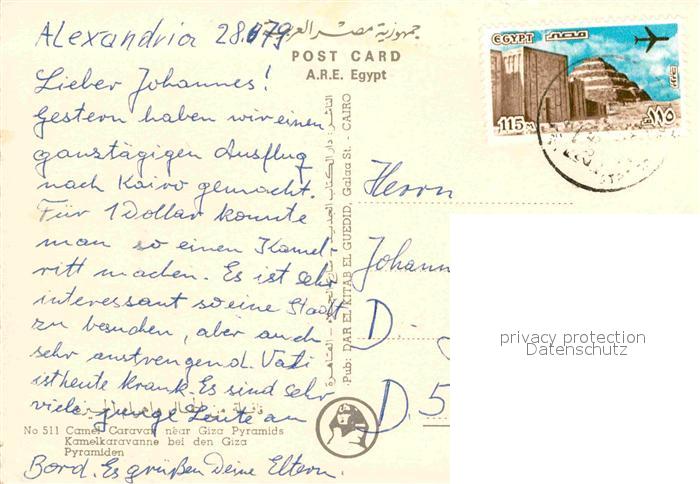 Alexandria 28.6.79
جمهورية مصر العربية
POST CARD
A.R.E. Egypt
EGYPT مصر
115 M ١١٥
Lieber Johannes!
Gestern haben wir einen
ganztägigen Ausflug
nach Kairo gemacht.
Für 1 Dollar konnte
man so einen Kamel-
ritt machen. Es ist sehr
interessant so eine Stadt
zu besuchen, aber auch
sehr anstrengend. Vati
ist heute krank. Es sind sehr
viele junge Leute an
Bord. Es grüßen Deine Eltern.
No 511 Camel Caravan near Giza Pyramids
Kamelkaravanne bei den Giza
Pyramiden
Pub: DAR EL KITAB EL GUEDID, Galaa St. - CAIRO
Herrn
Johann
D-
D.5
privacy protection
Datenschutz